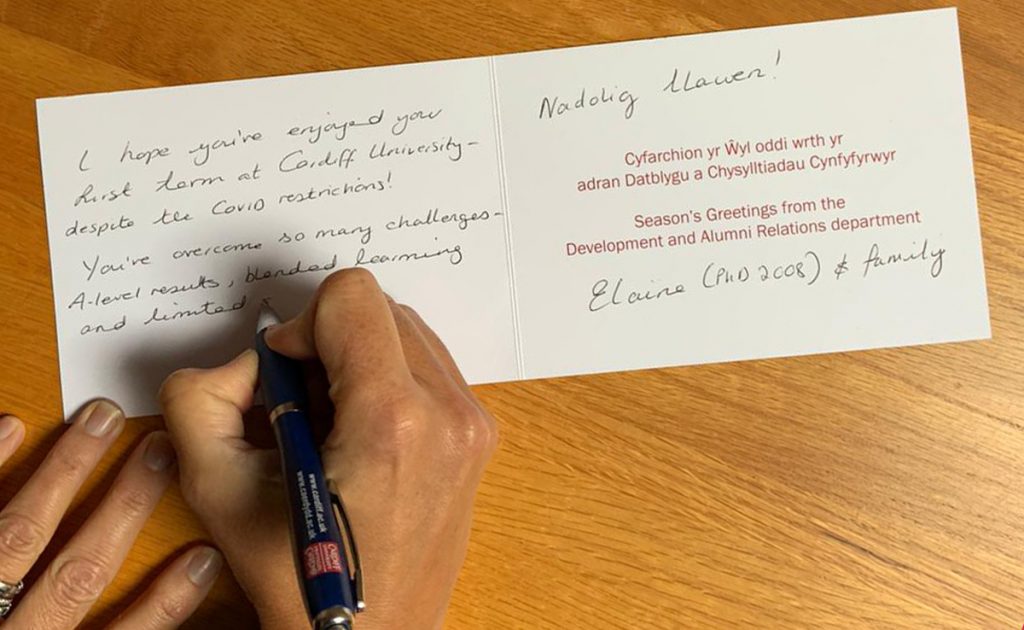 I hope you've enjoyed your
first term at Cardiff University -
despite the Covid restrictions!
You've overcome so many challenges -
A-level results, blended learning
and limited
Nadolig Llawen!
Cyfarchion yr Ŵyl oddi wrth yr
adran Datblygu a Chysylltiadau Cynfyfyrwyr
Season's Greetings from the
Development and Alumni Relations department
Elaine (PhD 2008) & family
www.cardiff.ac.uk
www.caerdydd.ac.uk